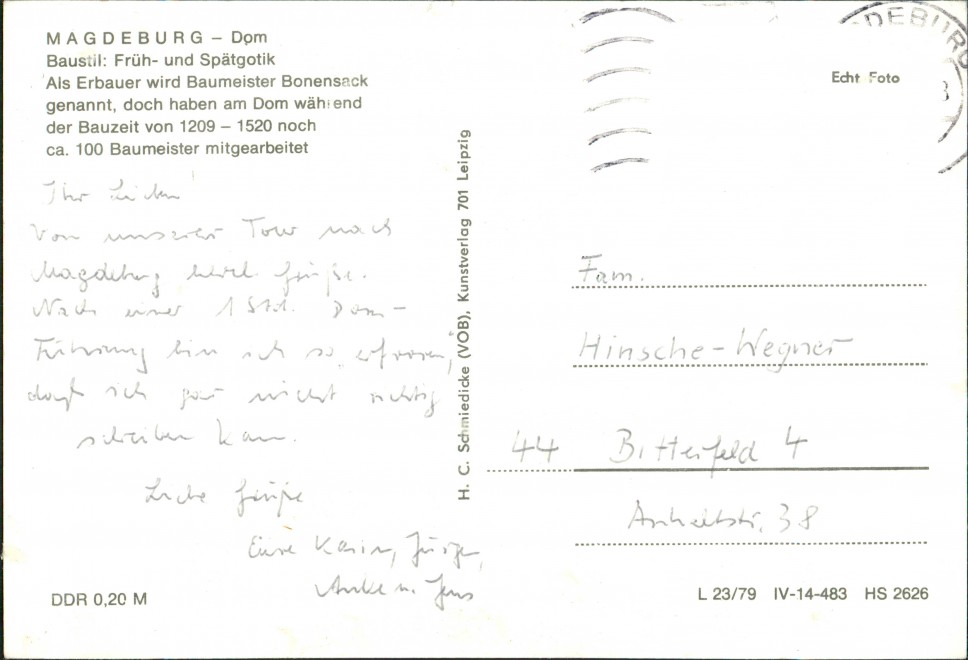 MAGDEBURG – Dom
Baustil: Früh- und Spätgotik
Als Erbauer wird Baumeister Bonensack
genannt, doch haben am Dom während
der Bauzeit von 1209 – 1520 noch
ca. 100 Baumeister mitgearbeitet
Ihr Lieben!
Von unserer Tour nach
Magdeburg herzl. Grüße.
Nach einer 1 Std. Dom-
Führung bin ich so erfroren,
daß ich gar nicht richtig
schreiben kann.
Liebe Grüße
Eure Karin, Jürgen,
Anke u. Jens
DDR 0,20 M
H. C. Schmiedicke (VOB), Kunstverlag 701 Leipzig
DEBURG
Echt Foto
Fam.
Hinsche-Wegner
44 Bitterfeld 4
Anhaltstr. 38
L 23/79 IV-14-483 HS 2626